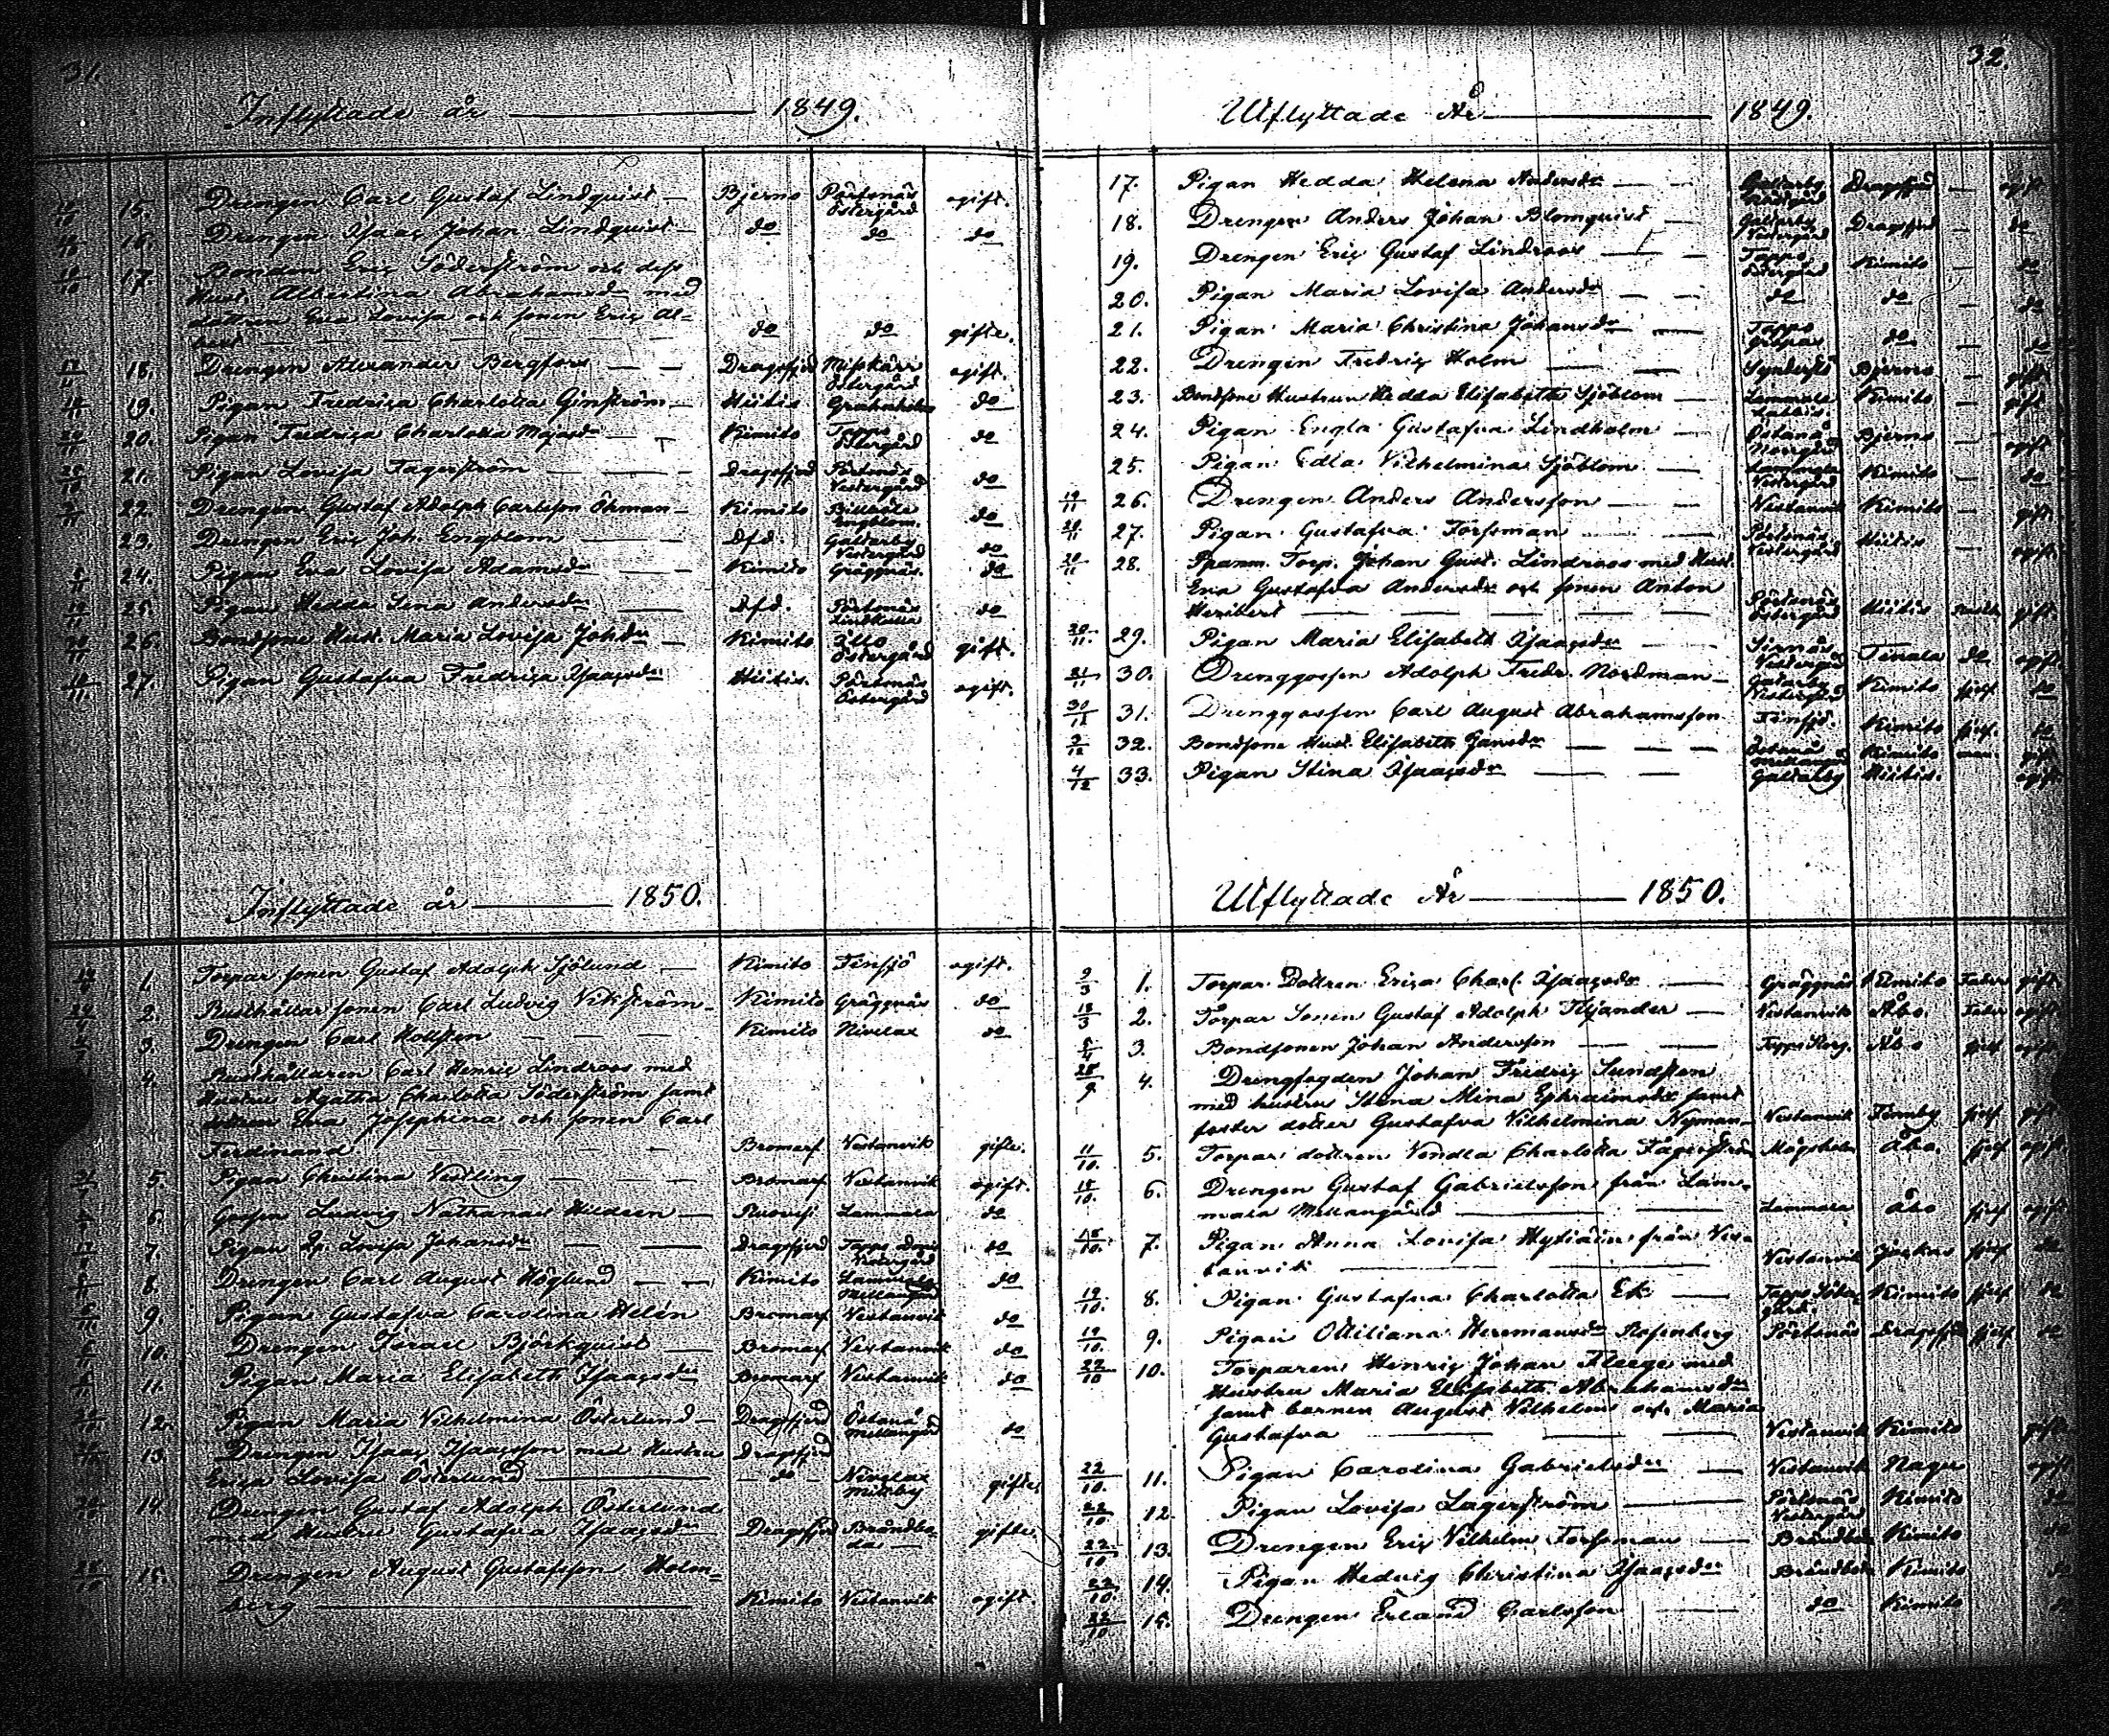 31.
Inflyttade år 1849.
15. Drengen Carl Gustaf Lindquist Bjerno Pörtsnäs Östergård ogift.
16. Drengen Isaac Johan Lindquist do do do
17. Bonden Eric Söderström och dess
Hust. Albertina Abrahamsdr med
dottren Eva Lovisa och sonen Eric Al-
bert do do gifte.
18. Drengen Alexander Bergfors Dragsfjerd Misskärr Östergård ogift.
19. Pigan Fredrica Charlotta Ginström Hiitis do
20. Pigan Fredrica Charlotta Majasdr Kimito Tappo Östergård do
21. Pigan Lovisa Fagerström Dragsfjerd Pörtsnäs Vestergård do
22. Drengen Gustaf Adolph Carlsson Öhman Kimito Billböle Engblom. do
23. Drengen Eric Joh. Engblom Dfd. Galtarby Vestergård do
24. Pigan Eva Lovisa Adamsdr Kimito Gräggnäs. do
25. Pigan Hedda Lena Andersdr Dfd. Pörtsnäs do
26. Bondsone Hust. Maria Lovisa Johdr Kimito Östergård gift.
27. Pigan Gustafva Fredrica Isaacsdr Hiitis. Pörtsnäs Östergård ogift.
Inflyttade år 1850.
1. Torpar sonen Gustaf Adolph Sjölund Kimito Finsjö ogift.
2. Rusthållar sonen Carl Ludvig Vikström Kimito Gräggnäs do
3. Drengen Carl Hollsten Kimito Nivelax do
4. Rusthållaren Carl Henric Lindroos med
Hustru Agatha Charlotta Söderström samt
dottren Eva Josephina och sonen Carl
Ferdinand Bromarf Vestanvik gifte.
5. Pigan Christina Vestling Bromarf Vestanvik ogift.
6. Gossen Ludvig Nathanael Hildeen Ruovesi Lammala do
7. Pigan Lovisa Johansdr Dragsfjerd Tappo Vestergård do
8. Drengen Carl August Höglund Kimito Lammala Mellangård do
9. Pigan Gustafva Carolina Helén Bromarf Vestanvik do
10. Drengen Israel Björkquist Bromarf Vestanvik do
11. Pigan Maria Elisabeth Isaacsdr Bromarf Vestanvik do
12. Pigan Maria Vilhelmina Österlund Dragsfjerd Östanå Mellangård do
13. Drengen Isaac Isaacsson med Hustru Dragsfjerd
Erica Lovisa Österlund do Nivelax Millby gifte
14. Drengen Gustaf Adolph Österlund
med Hustru Gustafva Isaacsdr Dragsfjerd Brändbo da gifte.
15. Drengen August Gustafsson Holm-
berg Kimito Vestanvik ogift.
32.
Utflyttade År 1849.
17. Pigan Hedda Helena Andersdr Galtarby Dragsfjerd ogift
18. Drengen Anders Johan Blomquist Galtarby Vestergård Dragsfjerd do
19. Drengen Eric Gustaf Lindroos Tappo Östergård Kimito do
20. Pigan Maria Lovisa Andersdr do do do
21. Pigan Maria Christina Johansdr Tappo do do
22. Drengen Fredric Holm Bjerno gift
23. Bondsone Hustrun Hedda Elisabeth Sjöblom Lammala Kimito gift
24. Pigan Engla Gustafva Lindholm Östanå Norrgård Bjerno ogift
25. Pigan Edla Vilhelmina Sjöblom Lammala Vestergård Kimito do
19/11 26. Drengen Anders Andersson Vestanvik Kimito gift.
20/11 27. Pigan Gustafva Forssman Pörtsnäs Vestergård Hiitis ogift
20/11 28. Spanm. Torp. Johan Gust. Lindroos med Hust.
Eva Gustafva Andersdr och sonen Anton
Heribert Pörtsnäs Östergård Hiitis gift.
20/11. 29. Pigan Maria Elisabeth Isaacsdr Sirnäs Vestergård Tenala do ogift
21/11 30. Drenggossen Adolph Fredr. Nordman Galtarby Vestergård Kimito sjelf do
30/12 31. Drenggossen Carl August Abrahamsson Finsjö. Kimito sjelf. do
3/12 32. Bondsone Hust. Elisabeth Jansdr Östanå Mellangård Kimito gift
4/12 33. Pigan Stina Isaacsdr Galtarby Hiitis. ogift
Utflyttade År 1850.
2/3 1. Torpar Dottren Erica Charl. Isaacsdr Gräggnäs Kimito Fader gift.
18/3 2. Torpar Sonen Gustaf Adolph Flyander Vestanvik Åbo. Fader ogift
3. Bondsonen Johan Andersson Åbo sjelf ogift
4. Drengfogden Johan Fredric Sundsten
med hustru Stina Mina Ephraimsdr samt
foster dotter Gustafva Vilhelmina Nyman Vestanvik Finnby sjelf gift
11/10. 5. Torpar dottren Vendla Charlotta Fagerström Mågsholm Åbo. sjelf ogift
15/10. 6. Drengen Gustaf Gabrielsson från Lam-
mala Mellangård Lammala Åbo sjelf ogift
15/10. 7. Pigan Anna Lovisa Hytiäin från Ves-
tanvik Vestanvik sjelf do
19/10. 8. Pigan Gustafva Charlotta Ek Tappo Kimito sjelf do
19/10. 9. Pigan Ottiliana Hermansdr Rosenberg Pörtsnäs Dragsfjerd sjelf do
22/10 10. Torparen Henric Johan Fleege med
Hustru Maria Elisabeth Abrahamsdr
samt barnen August Vilhelm och Maria
Gustafva Vestanvik Kimito gift
22/10. 11. Pigan Carolina Gabrielsdr Vestanvik Nagu ogift
22/10 12. Pigan Lovisa Lagerström Pörtsnäs Vestergård Kimito do
22/10 13. Drengen Eric Vilhelm Forssman Brändboda Kimito do
22/10. 14. Pigan Hedvig Christina Isaacsdr Brändboda Kimito do
22/10 15. Drengen Erland Carlsson do Kimito do